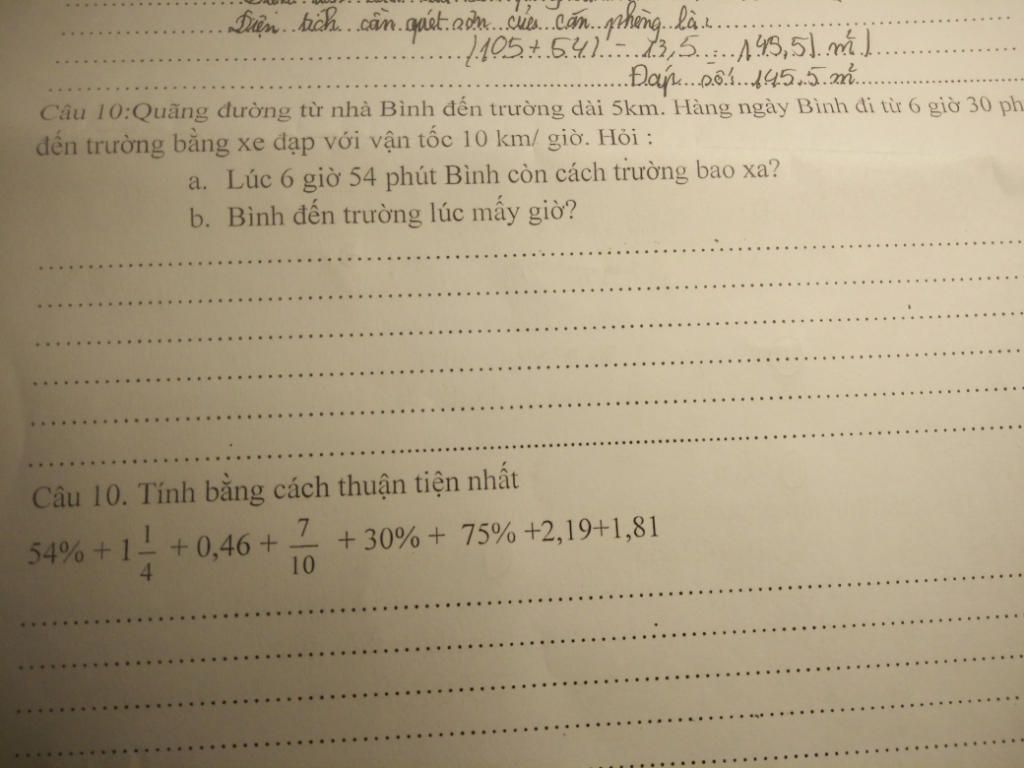 Diện tích cần quét sơn của căn phòng là:
(105 + 54) - 13,5 = 145,5( m²)
Đáp số: 145.5 m²
Câu 10:Quãng đường từ nhà Bình đến trường dài 5km. Hàng ngày Bình đi từ 6 giờ 30 ph
đến trường bằng xe đạp với vận tốc 10 km/ giờ. Hỏi :
a. Lúc 6 giờ 54 phút Bình còn cách trường bao xa?
b. Bình đến trường lúc mấy giờ?
Câu 10. Tính bằng cách thuận tiện nhất
54% + 1 1/4 + 0,46 + 7/10 + 30% + 75% +2,19+1,81